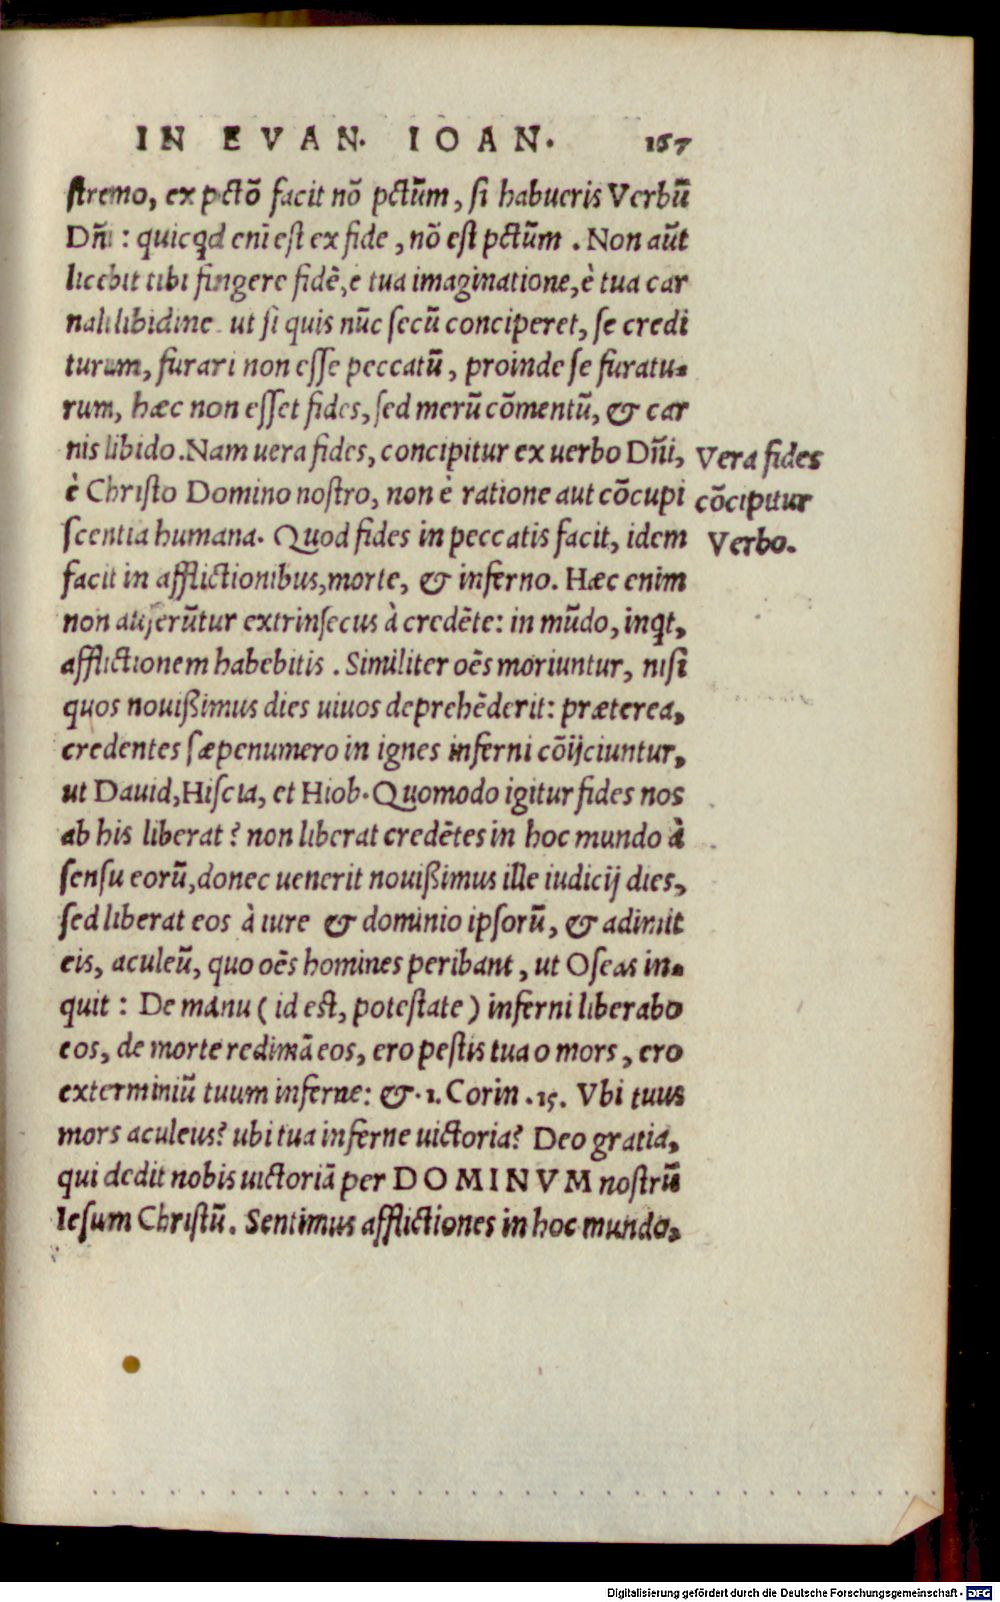 IN EVAN. IOAN. 167
stremo, ex pctõ facit nõ pctũm, si habueris Verbũ
Dñi: quicqd enĩ est ex fide, nõ est pctũm. Non aũt
licebit tibi fingere fidẽ, e tua imaginatione, è tua car
nali libidine ut si quis nũc secũ conciperet, se credi
turum, furari non esse peccatũ, proinde se furatu-
rum, hæc non esset fides, sed merũ cõmentũ, & car
nis libido. Nam uera fides, concipitur ex uerbo Dñi,
è Christo Domino nostro, non è ratione aut cõcupi
scentia humana. Quod fides in peccatis facit, idem
facit in afflictionibus, morte, & inferno. Hæc enim
non auferũtur extrinsecus à credẽte: in mũdo, inqt,
afflictionem habebitis. Similiter oẽs moriuntur, nisi
quos nouißimus dies uiuos deprehẽderit: præterea,
credentes sæpenumero in ignes inferni cõijciuntur,
ut Dauid, Hiscia, et Hiob. Quomodo igitur fides nos
ab his liberat? non liberat credẽtes in hoc mundo à
sensu eorũ, donec uenerit nouißimus ille iudicij dies,
sed liberat eos à iure & dominio ipsorũ, & adimit
eis, aculeũ, quo oẽs homines peribant, ut Oseas in-
quit: De manu (id est, potestate) inferni liberabo
eos, de morte redimã eos, ero pestis tua o mors, ero
exterminiũ tuum inferne: &. 1. Corin. 15. Vbi tuus
mors aculeus? ubi tua inferne uictoria? Deo gratia,
qui dedit nobis uictoriã per DOMINVM nostrũ
Iesum Christũ. Sentimus afflictiones in hoc mundo,
Vera fides
cõcipitur
Verbo.
Digitalisierung gefördert durch die Deutsche Forschungsgemeinschaft - DFG